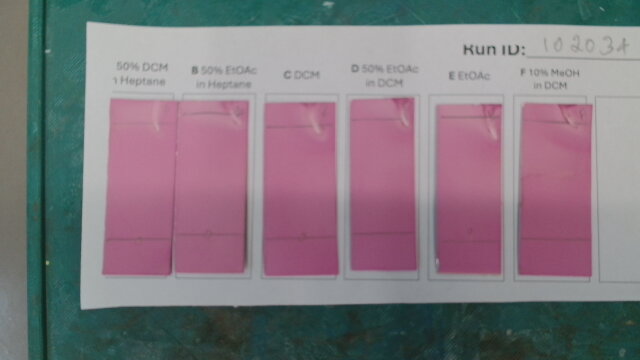 Run ID: 102031
50% DCM
n Heptane
B 50% EtOAc
in Heptane
C DCM
D 50% EtOAc
in DCM
E EtOAc
F 10% MeOH
in DCM